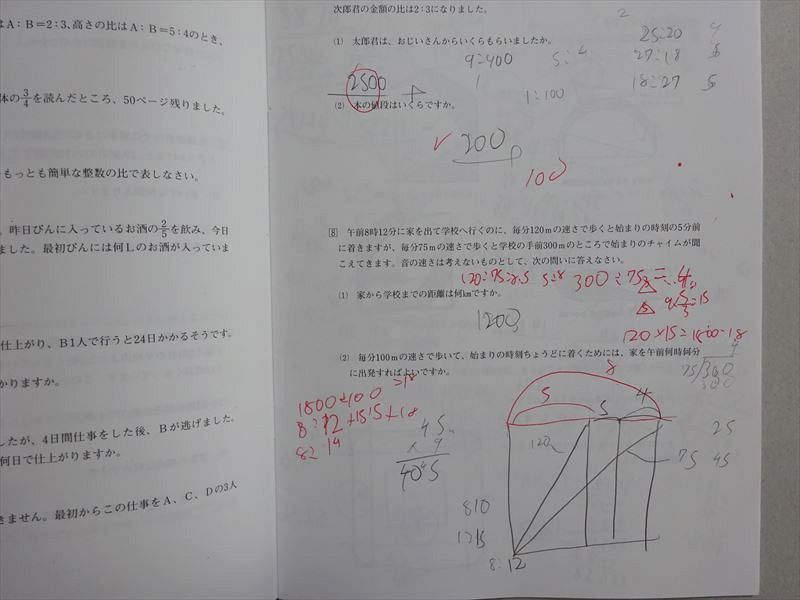 はA：B＝2：3、高さの比はA：B＝5：4のとき、
体の3/4を読んだところ、50ページ残りました。
もっとも簡単な整数の比で表しなさい。
。昨日びんに入っているお酒の2/5を飲み、今日
ました。最初びんには何Lのお酒が入っていま
仕上がり、B1人で行うと24日かかるそうです。
かりますか。
したが、4日間仕事をした後、Bが逃げました。
何日で仕上がりますか。
きません。最初からこの仕事をA、C、Dの3人
次郎君の金額の比は2：3になりました。
(1) 太郎君は、おじいさんからいくらもらいましたか。
9:400
1
1:100
2
25:20
27:18
18:27
2500
(2) 本の値段はいくらですか。
200
100
8 午前8時12分に家を出て学校へ行くのに、毎分120mの速さで歩くと始まりの時刻の5分前
に着きますが、毎分75mの速さで歩くと学校の手前300mのところで始まりのチャイムが聞
こえてきます。音の速さは考えないものとして、次の問いに答えなさい。
120:75=8:5 5:8 300÷75=4
(1) 家から学校までの距離は何kmですか。
1200
120×15=1800=1.8
(2) 毎分100mの速さで歩いて、始まりの時刻ちょうどに着くためには、家を午前何時何分
に出発すればよいですか。
75/300
300
1800÷100=18
8:12+15+5+18
8:14
45
×9
405
8
5
5
4
120
75
25
45
810
1215
8:12